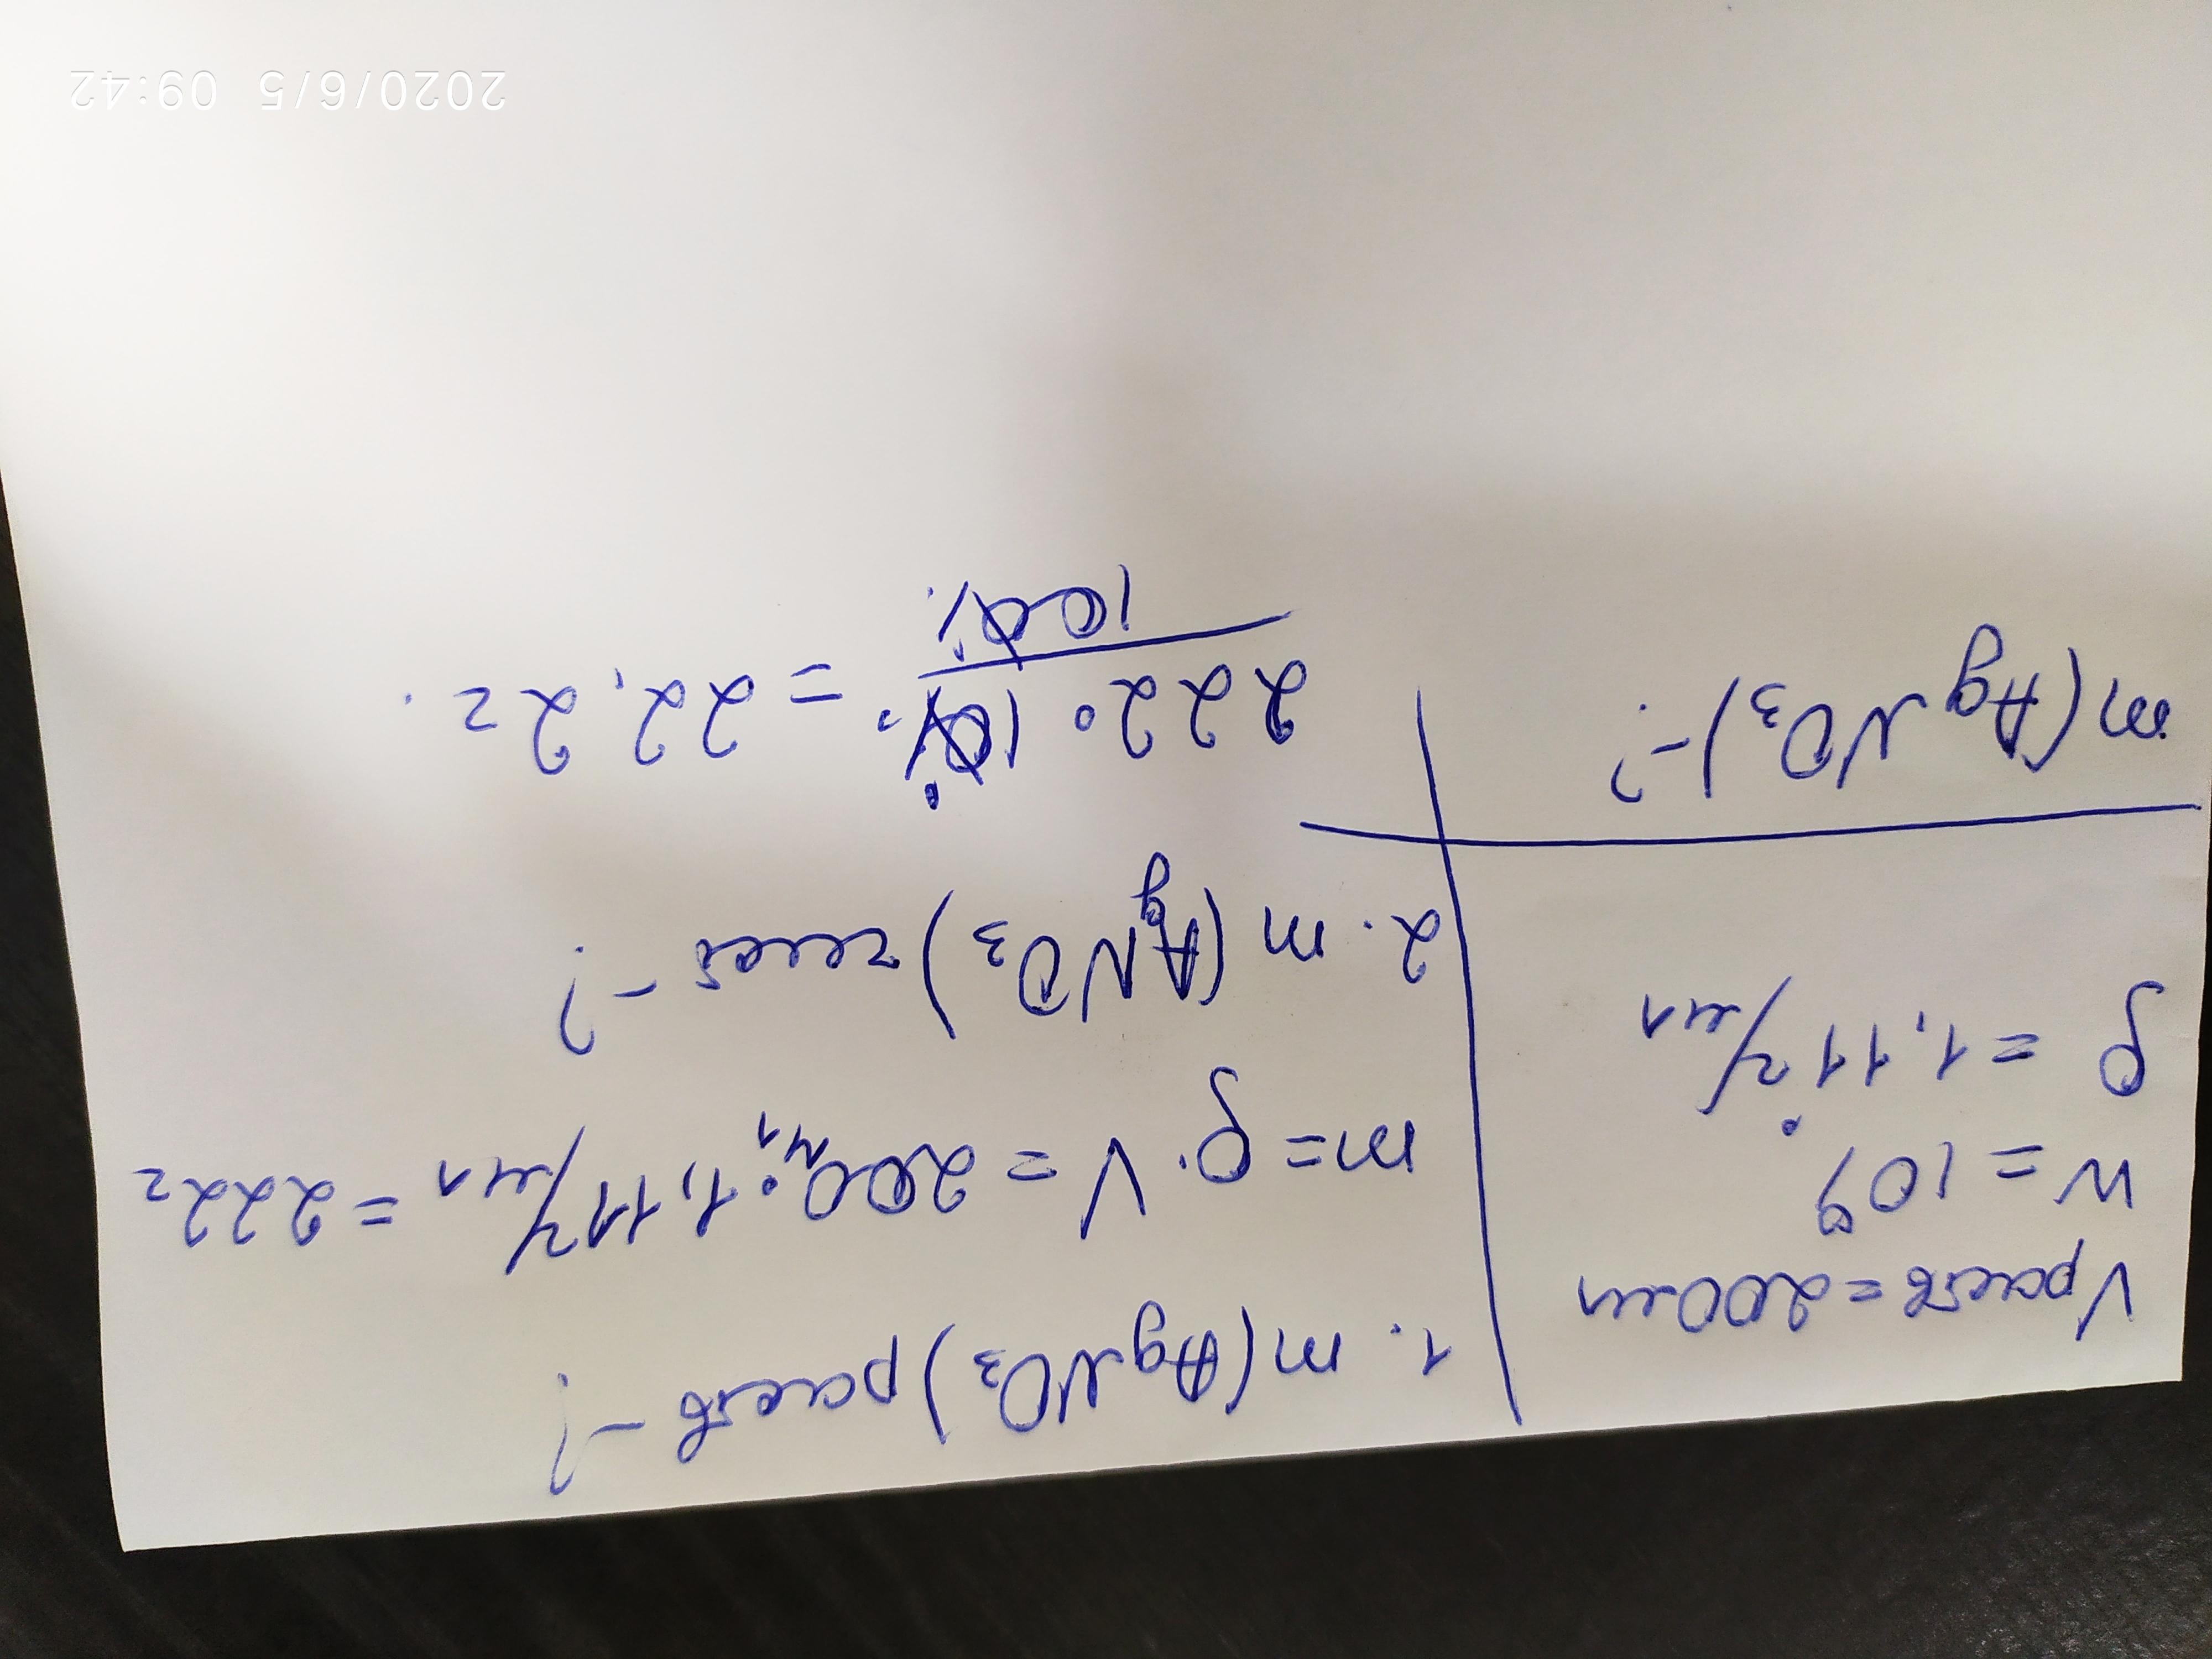 Vраств = 200 мл
w = 10%
ρ = 1,11 г/мл
m(AgNO3) - ?
1. m(AgNO3) раств - ?
m = ρ · V = 200 мл · 1,11 г/мл = 222 г
2. m(AgNO3) - ?
222 · 10% / 100% = 22,2 г.
2020/6/5 09:42